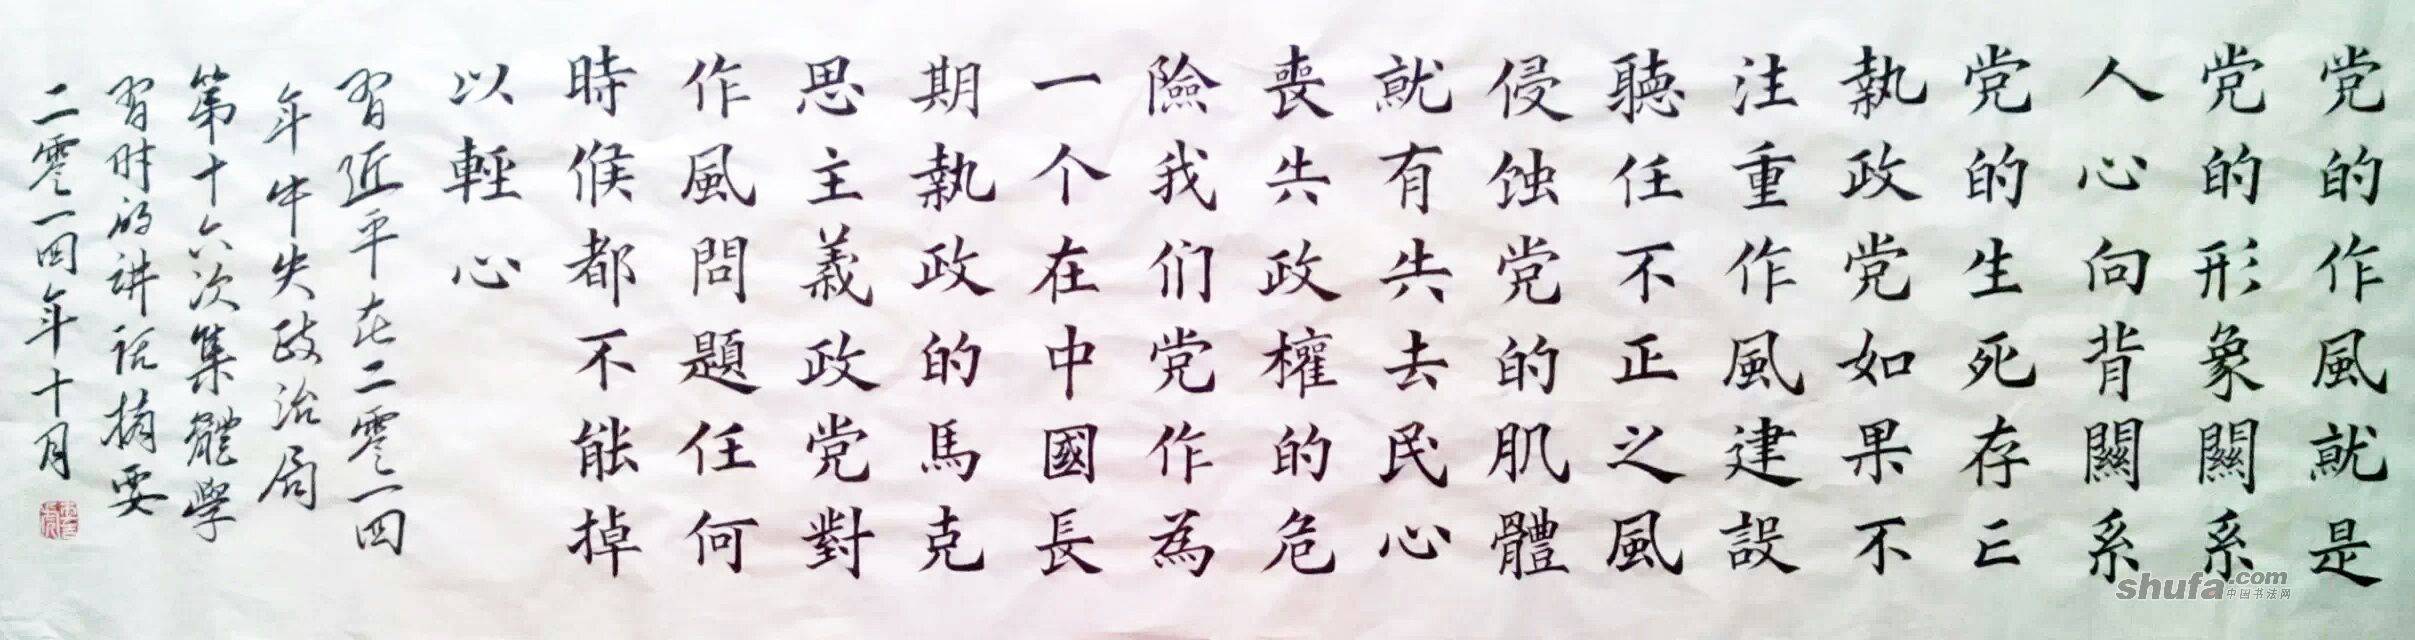 党的作風就是
党的形象關系
人心向背關系
党的生死存亡
執政党如果不
注重作風建設
聽任不正之風
侵蚀党的肌體
就有失去民心
喪失政權的危
險我们党作為
一个在中國長
期執政的馬克
思主義政党對
作風問題任何
時候都不能掉
以輕心
習近平在二零一四
年中央政治局
第十六次集體學
習时的讲话摘要
二零一四年十月
shufa.com
中国书法网